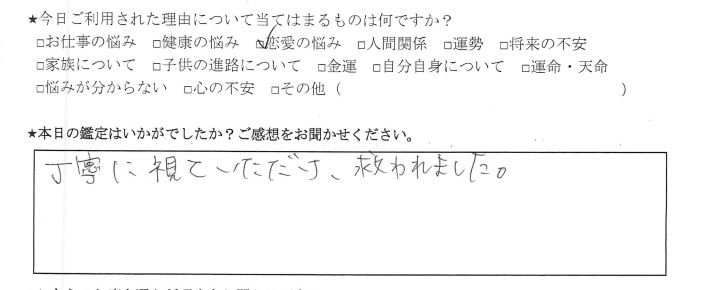 ★今日ご利用された理由について当てはまるものは何ですか？
□お仕事の悩み □健康の悩み ☑恋愛の悩み □人間関係 □運勢 □将来の不安
□家族について □子供の進路について □金運 □自分自身について □運命・天命
□悩みが分からない □心の不安 □その他（　　　　　　　　　　　　　　　　　　　　）
★本日の鑑定はいかがでしたか？ご感想をお聞かせください。
丁寧に視ていただけ、救われました。